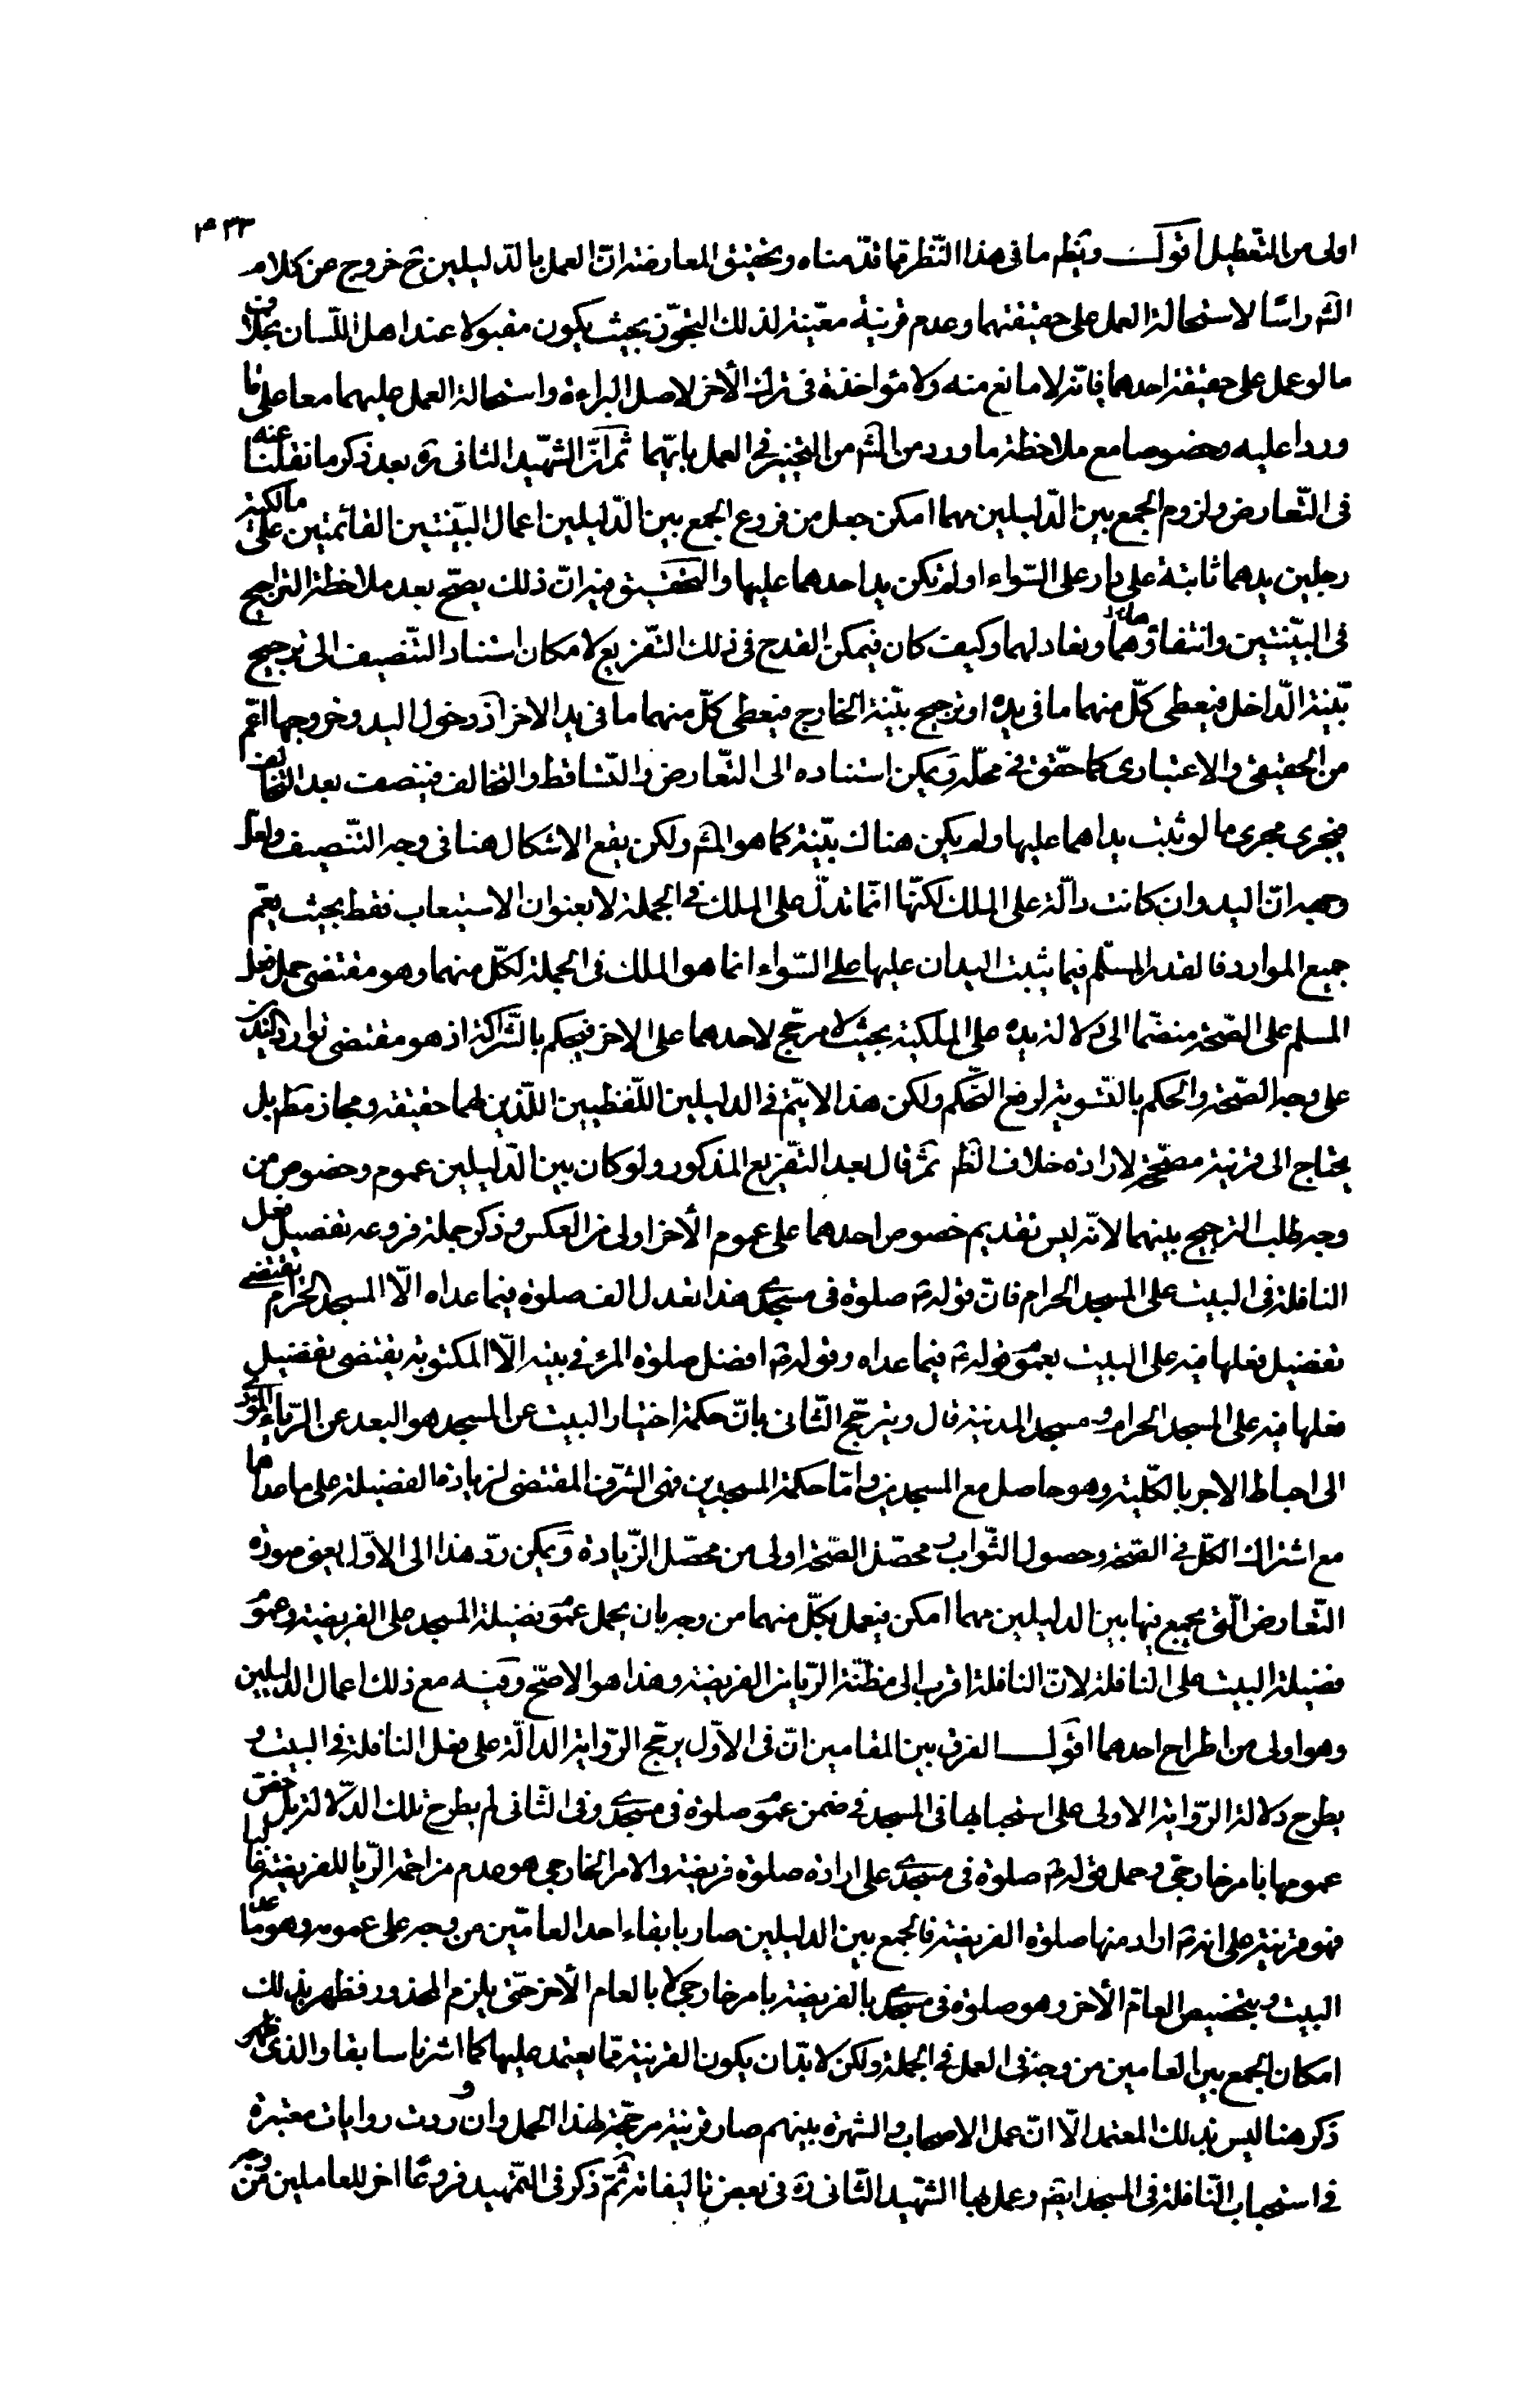 ٤٣٣
اولى من التّعطيل أقول ويظهر ما فى هذا النّظر ممّا قدّمناه وتحقيق المعارضة انّ العمل بالدّليلين ح خروج عن كلام
الشّه راسًا لاستحالة العمل على حقيقتهما وعدم قرينة معيّنة لذلك التجوّز بحيث يكون مقبولا عند اهل اللّسان بخلاف
ما لو عمل على حقيقة احدهما فانّه لا مانع منه ولا مؤاخذة فى ترك الأخر لاصل البراءة واستحالة العمل عليهما معا على ما
وردا عليه وخصوصا مع ملاحظة ما ورد من الشّه من التخيير فى العمل بايّهما ثمّ انّ الشّهيد الثانى ره بعد ذكر ما نقلنا عنه
فى التّعارض ولزوم الجمع بين الدّليلين مهما امكن جعل من فروع الجمع بين الدّليلين اعمال البيّنتين القائمتين على مالكية
رجلين يدهما ثابتة على دار على السّواء او لم يكن يد احدهما عليها والتحقيق فيه انّ ذلك يصحّ بعد ملاحظة التراجيح
فى البيّنتين وانتفاؤهما وتعادلهما وكيف كان فيمكن القدح فى ذلك التّفريع لامكان استناد التّنصيف الى ترجيح
بيّنة الدّاخل فيعطى كلّ منهما ما فى يده او ترجيح بيّنة الخارج فيعطى كلّ منهما ما فى يد الاخر اذ دخول اليد وخروجها اعمّ
من الحقيقى والاعتبارى كما حقّق فى محلّه ويمكن استناده الى التّعارض والتّساقط والتحالف فينصف بعد التحالف
فيجرى مجرى ما لو ثبت يداهما عليها ولم يكن هناك بيّنة كما هو المشه ولكن يقع الاشكال هنا فى وجه التّنصيف ولعلّ
وجهه انّ اليد وان كانت دالّة على الملك لكنّها انّما تدلّ على الملك فى الجملة لا بعنوان الاستيعاب فقط بحيث يعمّ
جميع الموارد فالقدر المسلّم فيما يثبت اليدان عليها على السّواء انما هو الملك فى الجملة لكلّ منهما وهو مقتضى حمل فعل
المسلم على الصّحة منضمّا الى دلالة يده على الملكية بحيث لا مرجّح لاحدهما على الاخر فيحكم بالشّراكة اذ هو مقتضى توارد اليدين
على وجه الصّحة والحكم بالتّسوية لرفع التّحكم ولكن هذا لا يتمّ فى الدليلين اللّفظيين اللّذين لهما حقيقة ومجاز مطم بل
يحتاج الى قرينة مصحّحة لارادة خلاف الظم ثمّ قال بعد التّفريع المذكور ولو كان بين الدّليلين عموم وخصوص من
وجه طلب الترجيح بينهما لانّه ليس تقديم خصوص احدهما على عموم الأخر اولى من العكس وذكر من جملة فروعه تفضيل فعل
النافلة فى البيت على المسجد الحرام فانّ قوله ص صلوة فى مسجدى هذا تعدل الف صلوة فيما عداه الّا المسجد الحرام يقتضى
تفضيل فعلها فيه على البيت بعموم قوله ص فيما عداه وقوله ص افضل صلوة المرء فى بيته الّا المكتوبة يقتضى تفضيل
فعلها فيه على المسجد الحرام ومسجد المدينة قال ويترجّح الثّانى بانّ حكمة اختيار البيت عن المسجد هو البعد عن الرّياء المؤدّى
الى احباط الاجر بالكلّية وهو حاصل مع المسجدين وامّا حكمة المسجدين فهى الشّرف المقتضى لزيادة الفضيلة على ما عداهما
مع اشتراك الكلّ فى الصّحة وحصول الثّواب ومحصّل الصّحة اولى من محصّل الزّيادة ويمكن ردّ هذا الى الاوّل يعنى صورة
التّعارض الّتى يجمع فيها بين الدليلين مهما امكن فيعمل بكلّ منهما من وجه بان يحمل عموم فضيلة المسجد على الفريضة وعموم
فضيلة البيت على النافلة لانّ النافلة اقرب الى مظنّة الرّيا من الفريضة وهذا هو الاصحّ وفيه مع ذلك اعمال الدليلين
وهو اولى من اطراح احدهما اقول الفرق بين المقامين انّ فى الاوّل يرجّح الرّواية الدالّة على فعل النافلة فى البيت و
يطرح دلالة الرّواية الاولى على استحبابها فى المسجد فى ضمن عموم صلوة فى مسجدى وفى الثّانى لم يطرح تلك الدّلالة بل خصّ
عمومها بامر خارجى وحمل قوله ص صلوة فى مسجدى على ارادة صلوة فريضة والامر الخارجى هو عدم مزاحمة الرّيا للفريضة غالبا
فهو قرينة على انه ص اراد منها صلوة الفريضة فالجمع بين الدليلين صار بابقاء احد العامّين من وجه على عمومه وهو ما عدا
البيت وبتخصيص العامّ الأخر وهو صلوة فى مسجدى بالفريضة بامر خارجى لا بالعام الأخر حتّى يلزم المحذور فظهر بذلك
امكان الجمع بين العامين من وجه فى العمل فى الجملة ولكن لا بدّ ان يكون القرينة ممّا يعتمد عليها كما اشرنا سابقا والذى ظهر
ذكر هنا ليس بذلك المعتمد الّا انّ عمل الاصحاب والشهرة بينهم صار قرينة مرجّحة لهذا الحمل وان وردت روايات معتبرة
فى استحباب النّافلة فى المسجد ايضم وعمل بها الشهيد الثّانى ره فى بعض تاليفاته ثمّ ذكر فى التّمهيد فروعًا اخر للعاملين من وجه